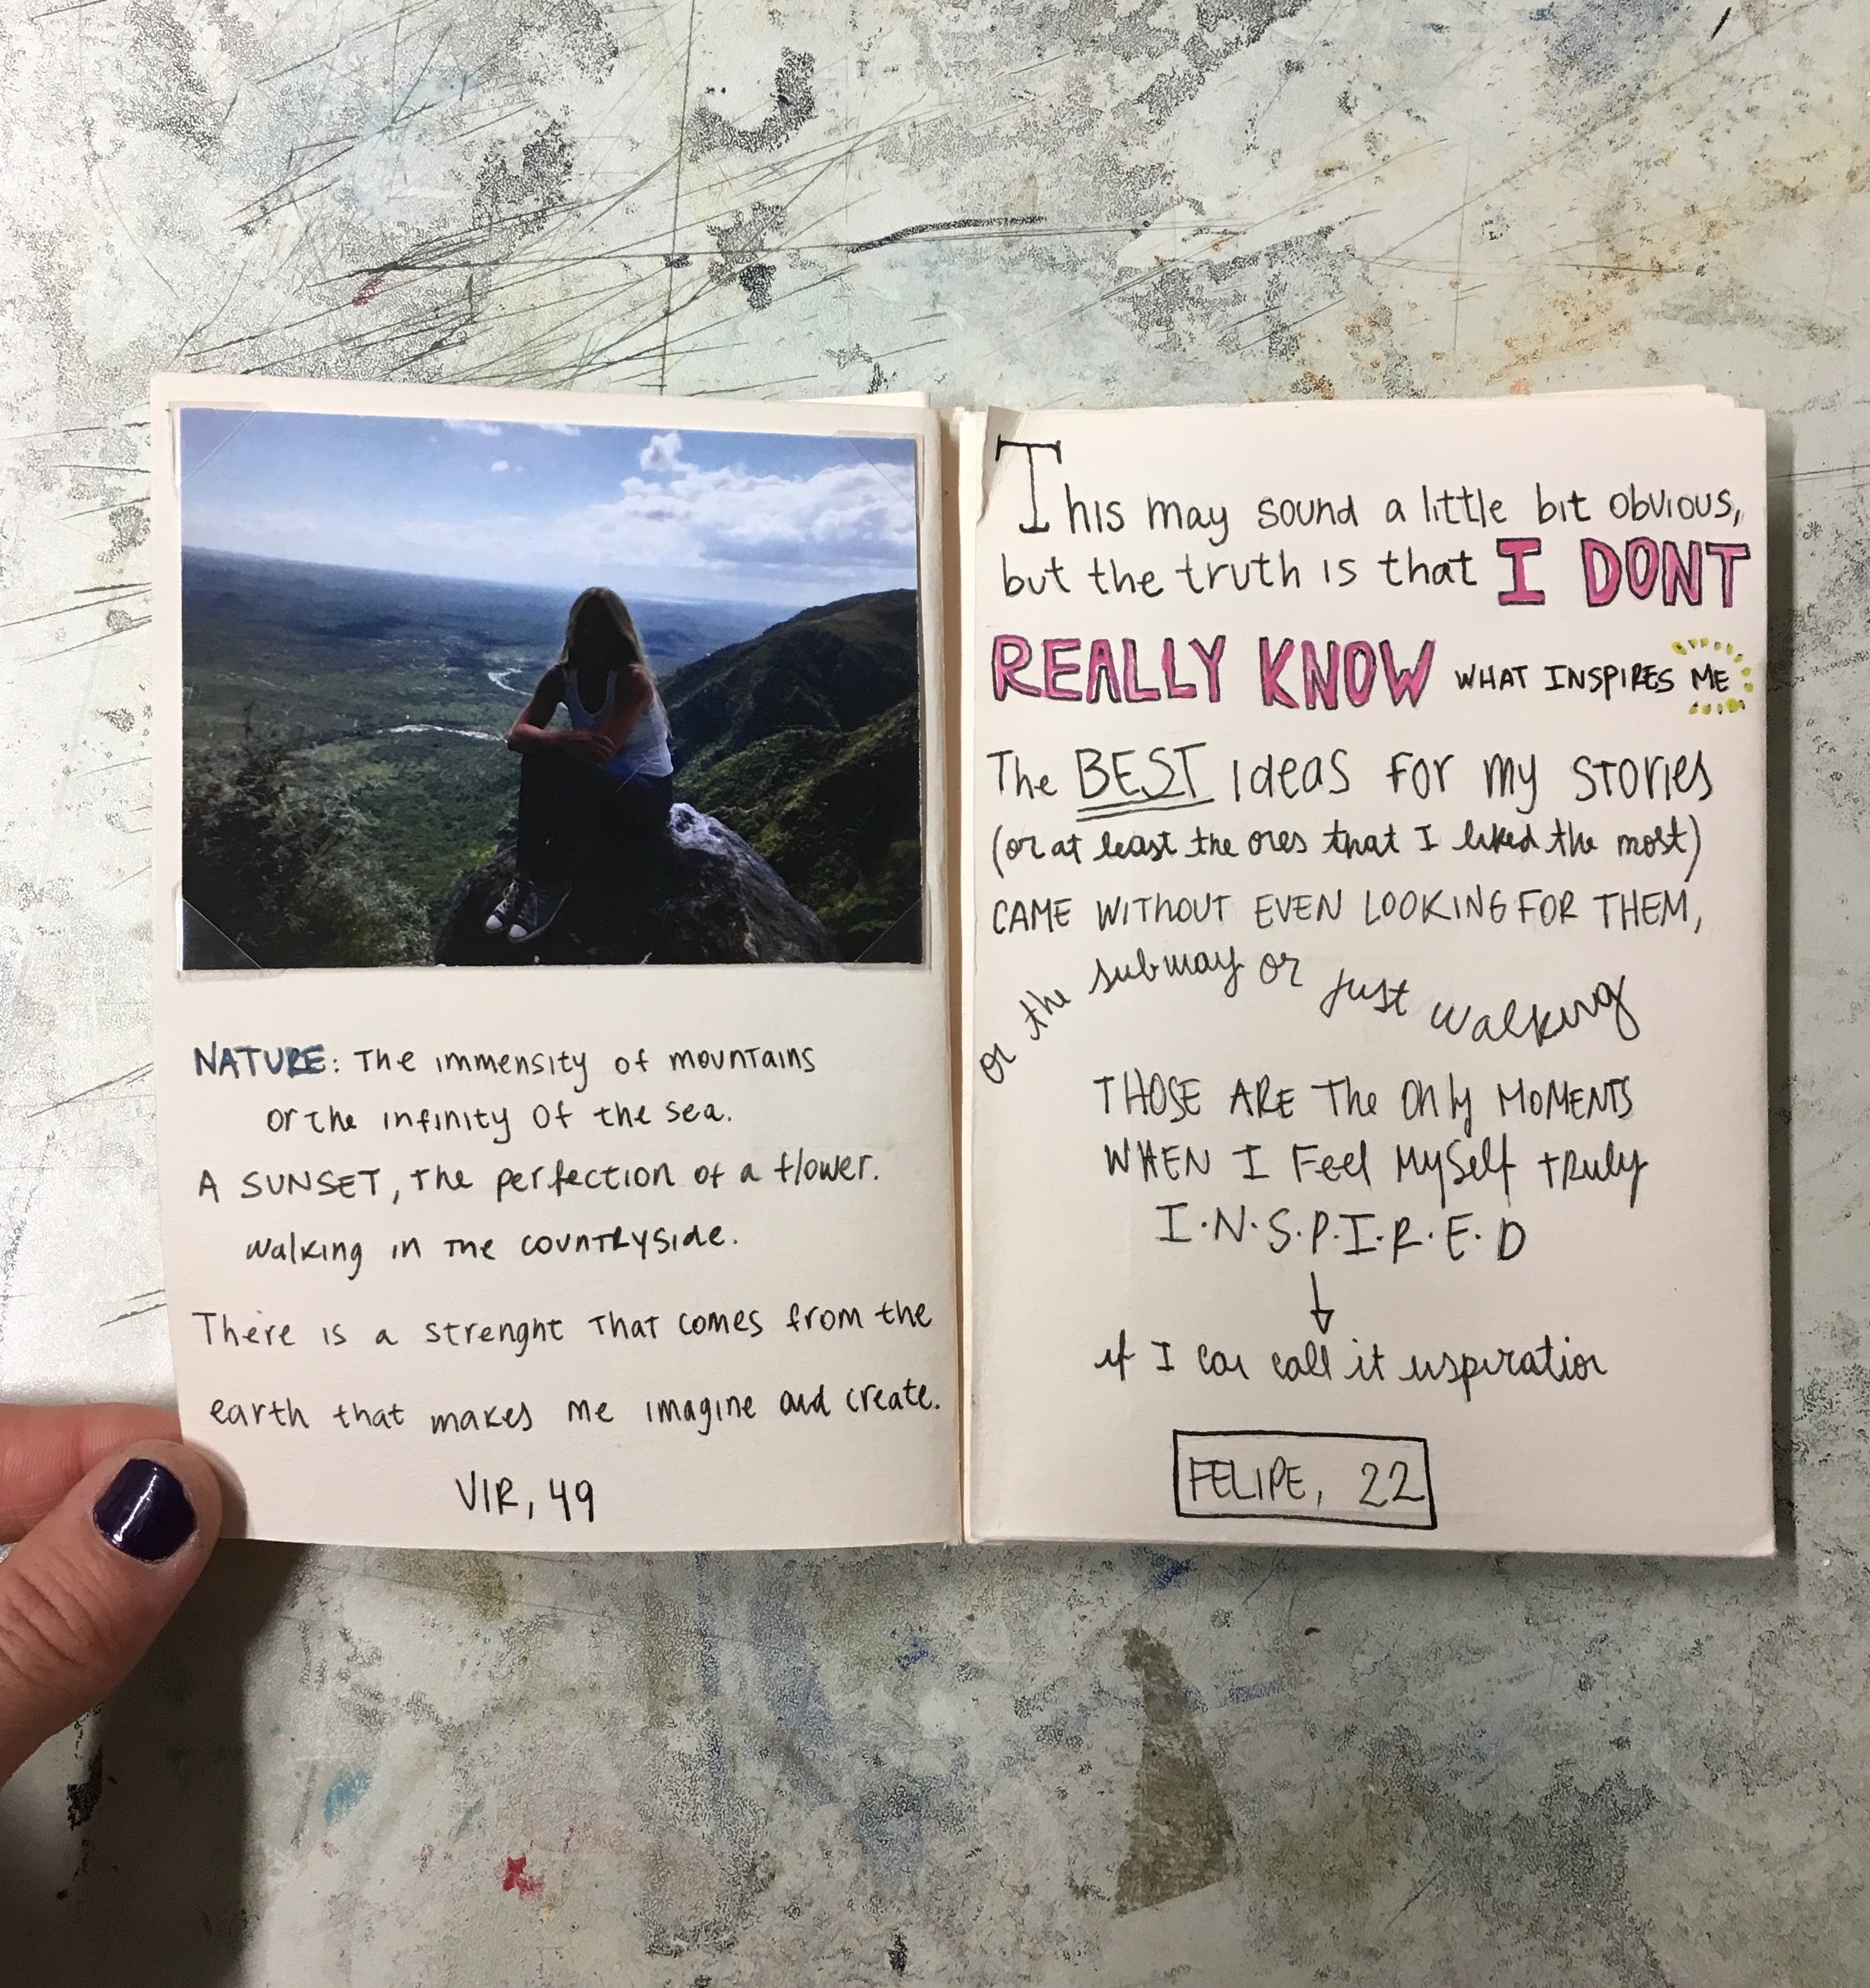 NATURE: The immensity of mountains
or the infinity of the sea.
A SUNSET, the perfection of a flower.
walking in the countryside.
There is a strenght that comes from the
earth that makes me imagine and create.
VIR, 49
This may sound a little bit obvious,
but the truth is that I DONT
REALLY KNOW WHAT INSPIRES ME
The BEST ideas for my stories
(or at least the ones that I liked the most)
CAME WITHOUT EVEN LOOKING FOR THEM,
on the subway or just walking
THOSE ARE The Only MOMENTS
WHEN I Feel MySelf tRuly
I.N.S.P.I.R.E.D
↓
if I can call it inspiration
FELIPE, 22